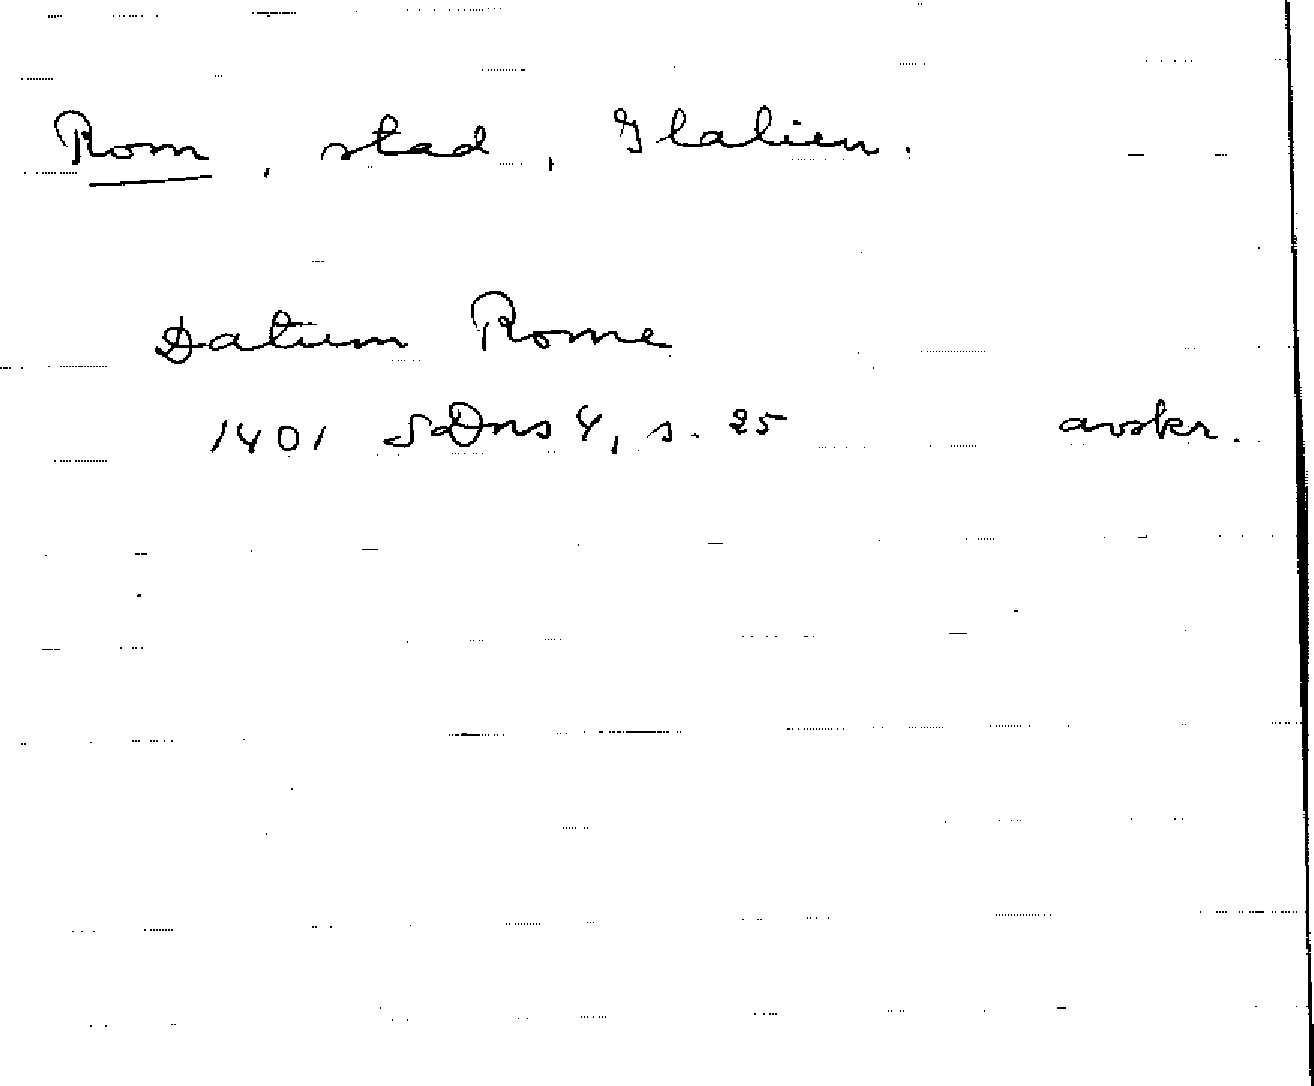 Rom, stad, Italien.
Datum Rome
1401 SDns 4, s. 25 avskr.